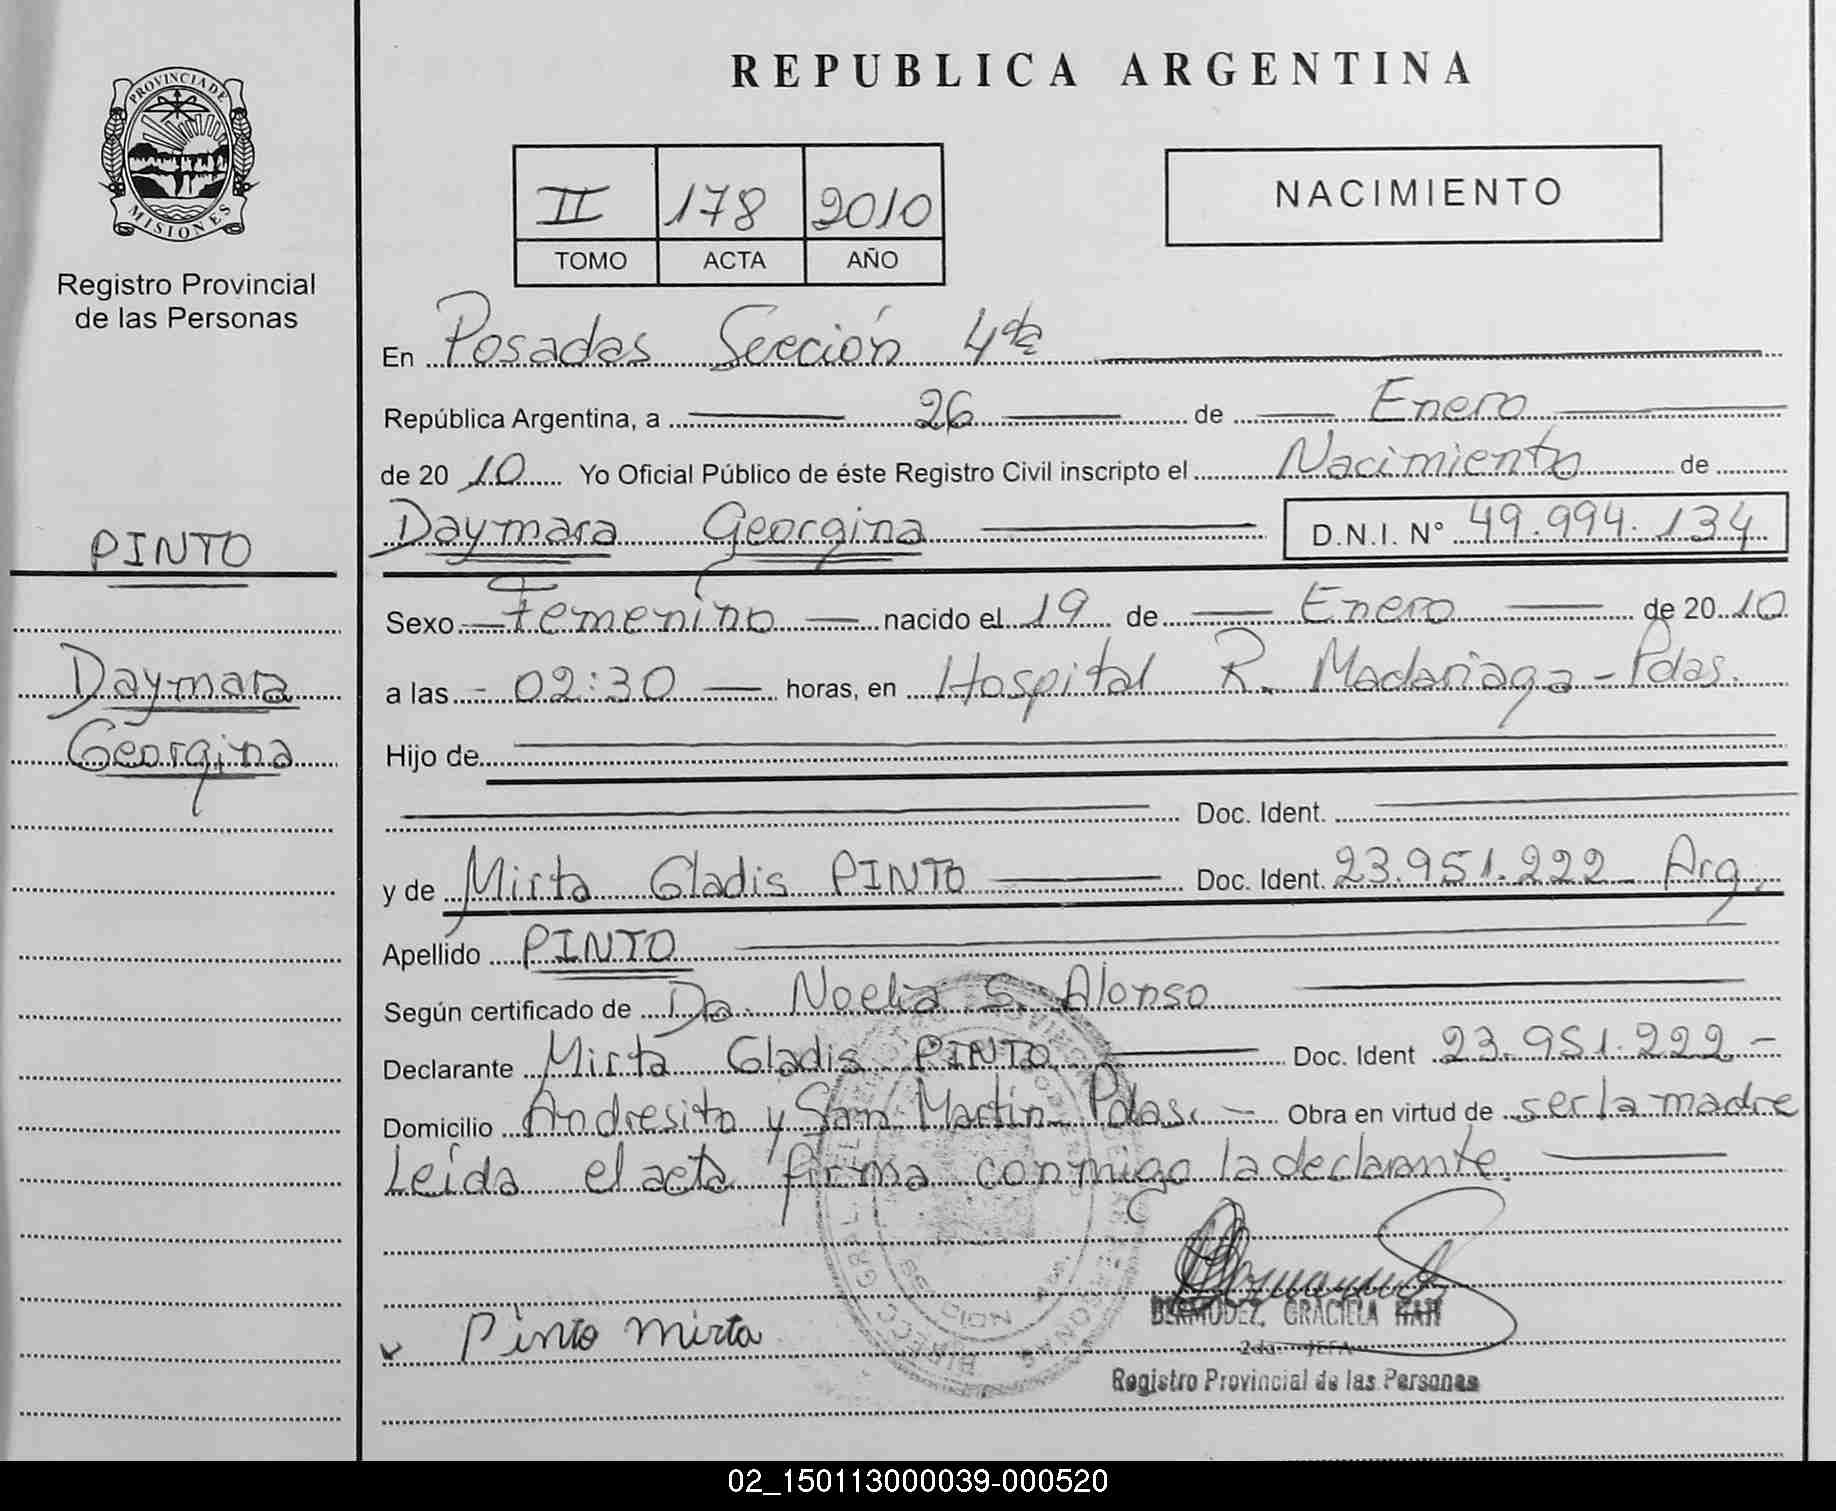 REPUBLICA ARGENTINA
PROVINCIA DE
MISIONES
Registro Provincial
de las Personas
II 178 2010
TOMO ACTA AÑO
NACIMIENTO
En Posadas Sección 4ta
República Argentina, a 26 de Enero
de 2010 Yo Oficial Público de éste Registro Civil inscripto el Nacimiento de
PINTO
Daymara Georgina D.N.I. N° 49.994.134
Sexo Femenino nacido el 19 de Enero de 2010
Daymara
a las 02:30 horas, en Hospital R. Madariaga - Pdas.
Georgina
Hijo de
Doc. Ident.
y de Mirta Gladis PINTO Doc. Ident. 23.951.222 Arg.
Apellido PINTO
Según certificado de Da. Noelia S. Alonso
Declarante Mirta Gladis PINTO Doc. Ident 23.951.222 -
Domicilio Andresito y San Martin Pdas. - Obra en virtud de ser la madre
Leída el acta firma conmigo la declarante.
BERMUDEZ, GRACIELA
Pinto Mirta
2da. JEFA
Registro Provincial de las Personas
02_150113000039-000520